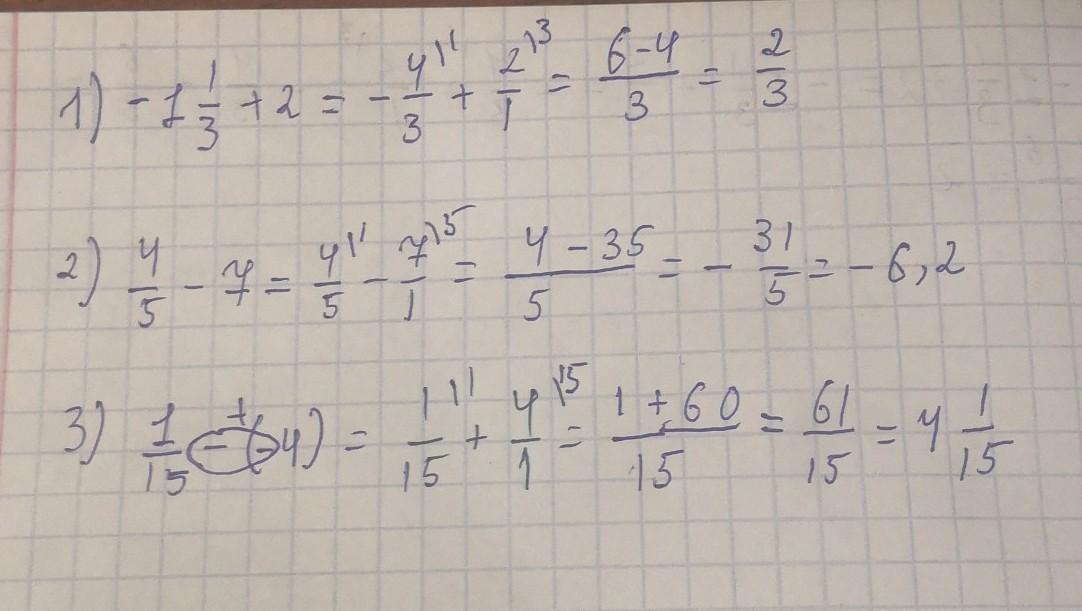 1) -1 1/3 + 2 = - 4\1/3 + 2\3/1 = 6-4/3 = 2/3
2) 4/5 - 7 = 4\1/5 - 7\5/1 = 4-35/5 = - 31/5 = -6,2
3) 1/15 - (-4) + = 1\1/15 + 4\15/1 = 1+60/15 = 61/15 = 4 1/15